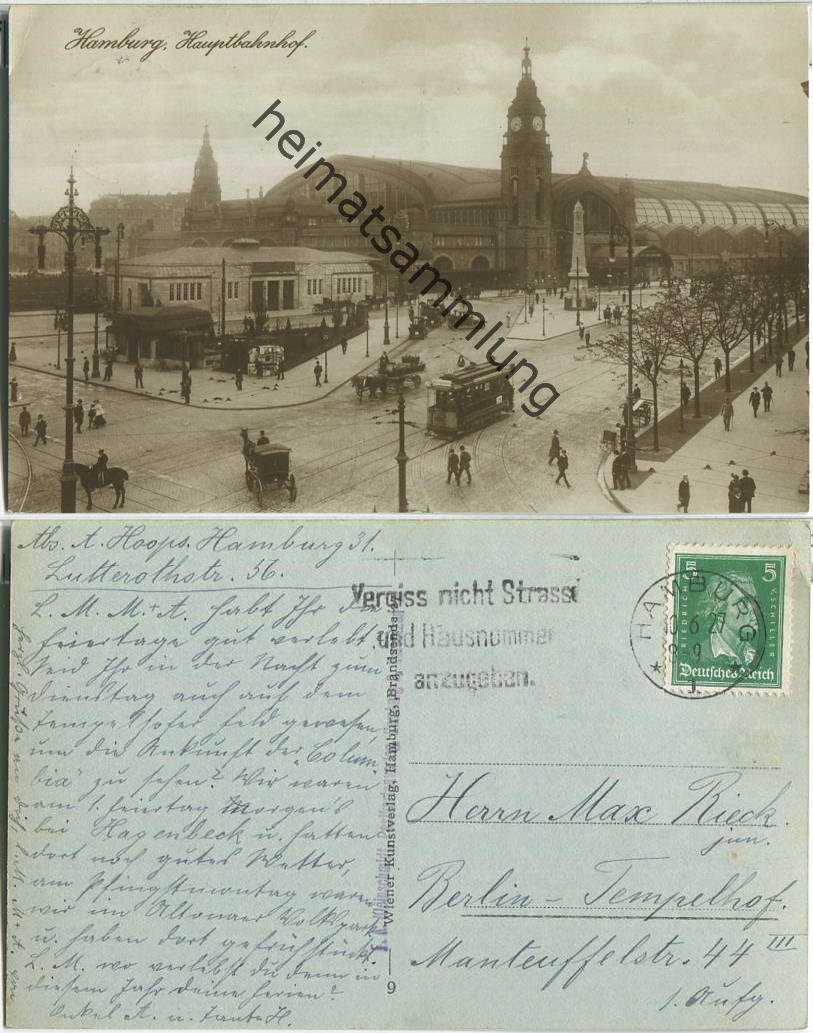 Hamburg, Hauptbahnhof.
heimatsammlung
Abs. A. Hoops. Hamburg 31.
Lutterothstr. 56.
L. M. M. + A. Habt Ihr die
Feiertage gut verlebt.
Seid Ihr in der Nacht zum
Dienstag auch auf dem
Tempelhofer Feld gewesen,
um die Ankunft der „Colum-
bia" zu sehen? Wir waren
am 1. Feiertag Morgens
bei Hagenbeck u. hatten
dort noch gutes Wetter,
am Pfingstmontag waren
wir im Altonaer Volkspark
u. haben dort gefrühstückt.
L. M. wo verlebst du denn in
diesem Jahr deine Ferien?
Onkel A. u. Tante H.
Herzl. Grüße an L. M. M. + A. von
Vergiss nicht Strasse
und Hausnummer
anzugeben.
HAMBURG
6 27
8-9
1
FRIEDRICH v. SCHILLER
5
Deutsches Reich
Wiener Kunstverlag, Hamburg, Brandsende
9
Herrn Max Rieck.
jun.
Berlin - Tempelhof.
Manteuffelstr. 44 III
1. Aufg.